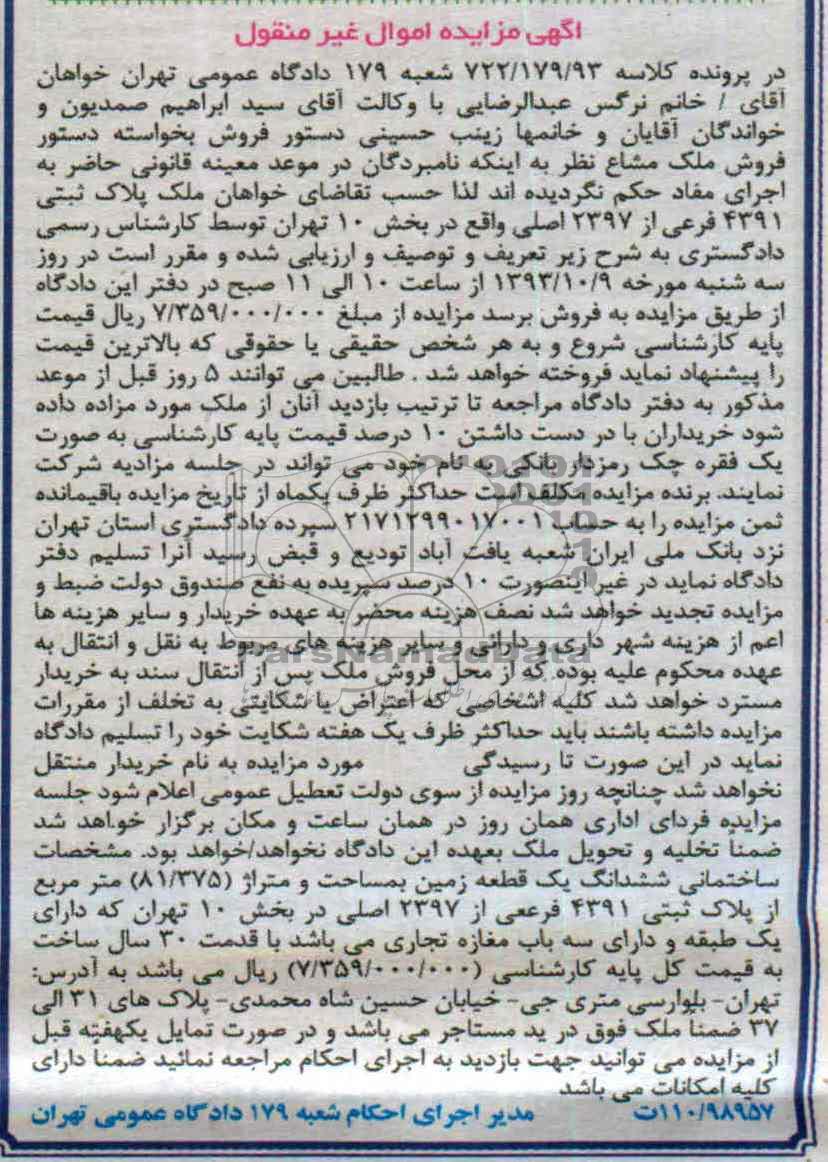 آگهی مزایده اموال غیر منقول
در پرونده کلاسه ۷۲۲/۱۷۹/۹۳ شعبه ۱۷۹ دادگاه عمومی تهران خواهان
آقای / خانم نرگس عبدالرضایی با وکالت آقای سید ابراهیم صمدیون و
خواندگان آقایان و خانمها زینب حسینی دستور فروش بخواسته دستور
فروش ملک مشاع نظر به اینکه نامبردگان در موعد معینه قانونی حاضر به
اجرای مفاد حکم نگردیده اند لذا حسب تقاضای خواهان ملک پلاک ثبتی
۴۳۹۱ فرعی از ۲۳۹۷ اصلی واقع در بخش ۱۰ تهران توسط کارشناس رسمی
دادگستری به شرح زیر تعریف و توصیف و ارزیابی شده و مقرر است در روز
سه شنبه مورخه ۱۳۹۳/۱۰/۹ از ساعت ۱۰ الی ۱۱ صبح در دفتر این دادگاه
از طریق مزایده به فروش برسد مزایده از مبلغ ۷/۳۵۹/۰۰۰/۰۰۰ ریال قیمت
پایه کارشناسی شروع و به هر شخص حقیقی یا حقوقی که بالاترین قیمت
را پیشنهاد نماید فروخته خواهد شد . طالبین می توانند ۵ روز قبل از موعد
مذکور به دفتر دادگاه مراجعه تا ترتیب بازدید آنان از ملک مورد مزاده داده
شود خریداران با در دست داشتن ۱۰ درصد قیمت پایه کارشناسی به صورت
یک فقره چک رمزدار بانکی به نام خود می تواند در جلسه مزادیه شرکت
نمایند. برنده مزایده مکلف است حداکثر ظرف یکماه از تاریخ مزایده باقیمانده
ثمن مزایده را به حساب ۲۱۷۱۲۹۹۰۱۷۰۰۱ سپرده دادگستری استان تهران
نزد بانک ملی ایران شعبه یافت آباد تودیع و قبض رسید آنرا تسلیم دفتر
دادگاه نماید در غیر اینصورت ۱۰ درصد سپریده به نفع صندوق دولت ضبط و
مزایده تجدید خواهد شد نصف هزینه محضر به عهده خریدار و سایر هزینه ها
اعم از هزینه شهر داری و دارائی و سایر هزینه های مربوط به نقل و انتقال به
عهده محکوم علیه بوده که از محل فروش ملک پس از انتقال سند به خریدار
مسترد خواهد شد کلیه اشخاصی که اعتراض یا شکایتی به تخلف از مقررات
مزایده داشته باشند باید حداکثر ظرف یک هفته شکایت خود را تسلیم دادگاه
نماید در این صورت تا رسیدگی مورد مزایده به نام خریدار منتقل
نخواهد شد چنانچه روز مزایده از سوی دولت تعطیل عمومی اعلام شود جلسه
مزایده فردای اداری همان روز در همان ساعت و مکان برگزار خواهد شد
ضمناً تخلیه و تحویل ملک بعهده این دادگاه نخواهد/خواهد بود. مشخصات
ساختمانی ششدانگ یک قطعه زمین بمساحت و متراژ (۸۱/۳۷۵) متر مربع
از پلاک ثبتی ۴۳۹۱ فرععی از ۲۳۹۷ اصلی در بخش ۱۰ تهران که دارای
یک طبقه و دارای سه باب مغازه تجاری می باشد با قدمت ۳۰ سال ساخت
به قیمت کل پایه کارشناسی (۷/۳۵۹/۰۰۰/۰۰۰) ریال می باشد به آدرس:
تهران- بلوارسی متری جی- خیابان حسین شاه محمدی- پلاک های ۳۱ الی
۳۷ ضمناً ملک فوق در ید مستاجر می باشد و در صورت تمایل یکهفته قبل
از مزایده می توانید جهت بازدید به اجرای احکام مراجعه نمائید ضمنا دارای
کلیه امکانات می باشد
۱۱۰/۹۸۹۵۷ت مدیر اجرای احکام شعبه ۱۷۹ دادگاه عمومی تهران
ParsNamadData